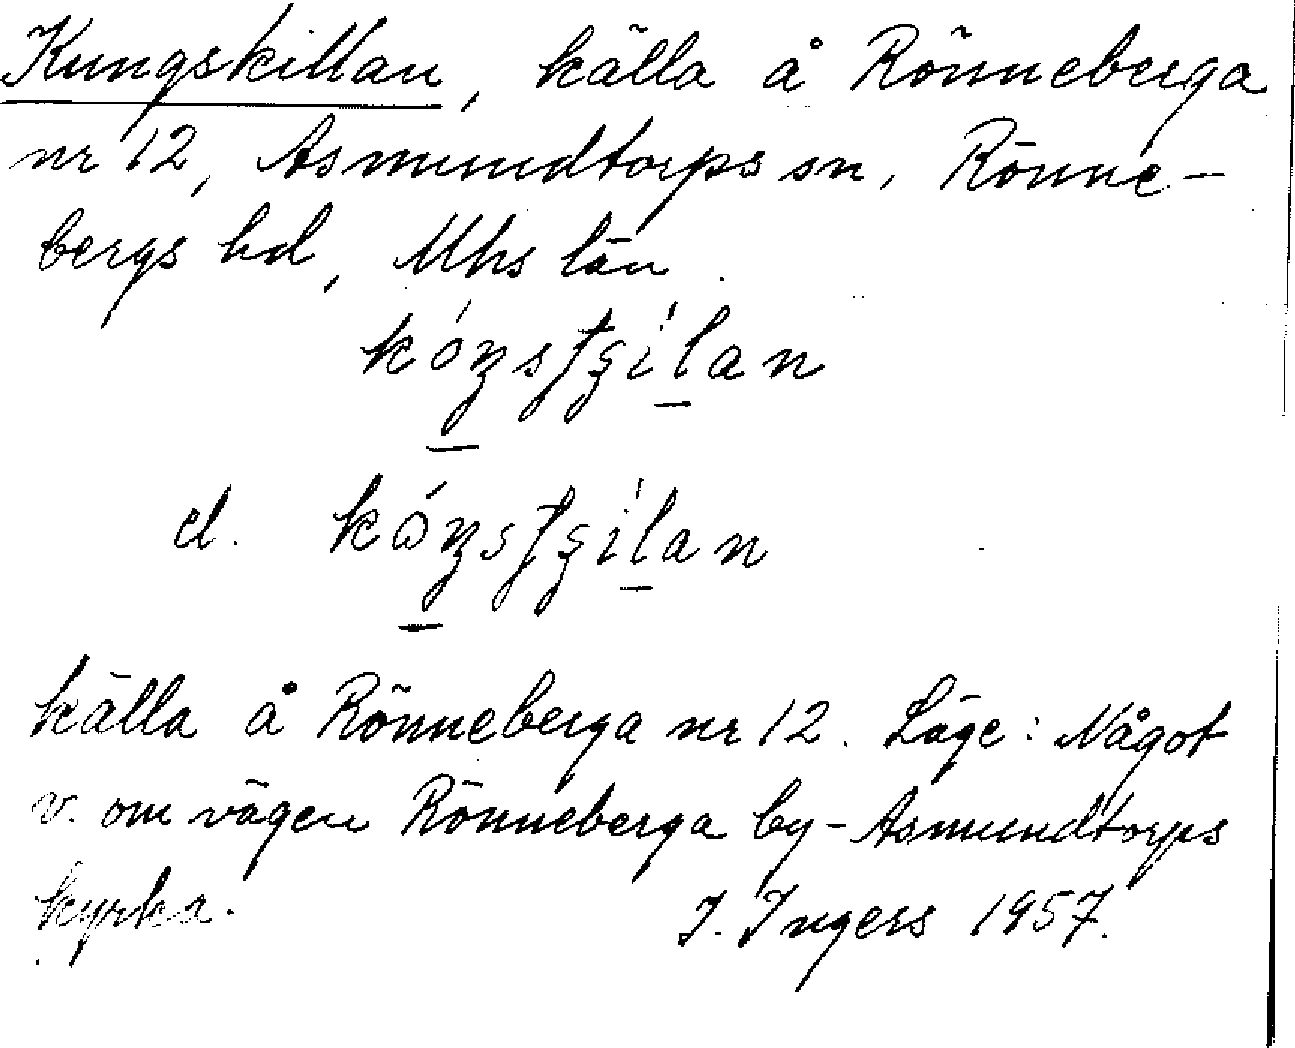 Kungskillan, källa å Rönneberga
nr 12, Asmundtorps sn, Rönne-
bergs hd, Mhs län.
d.
källa å Rönneberga nr 12. Läge: Något
v. om vägen Rönneberga by - Asmundtorps
kyrka. I. Ingers 1957.